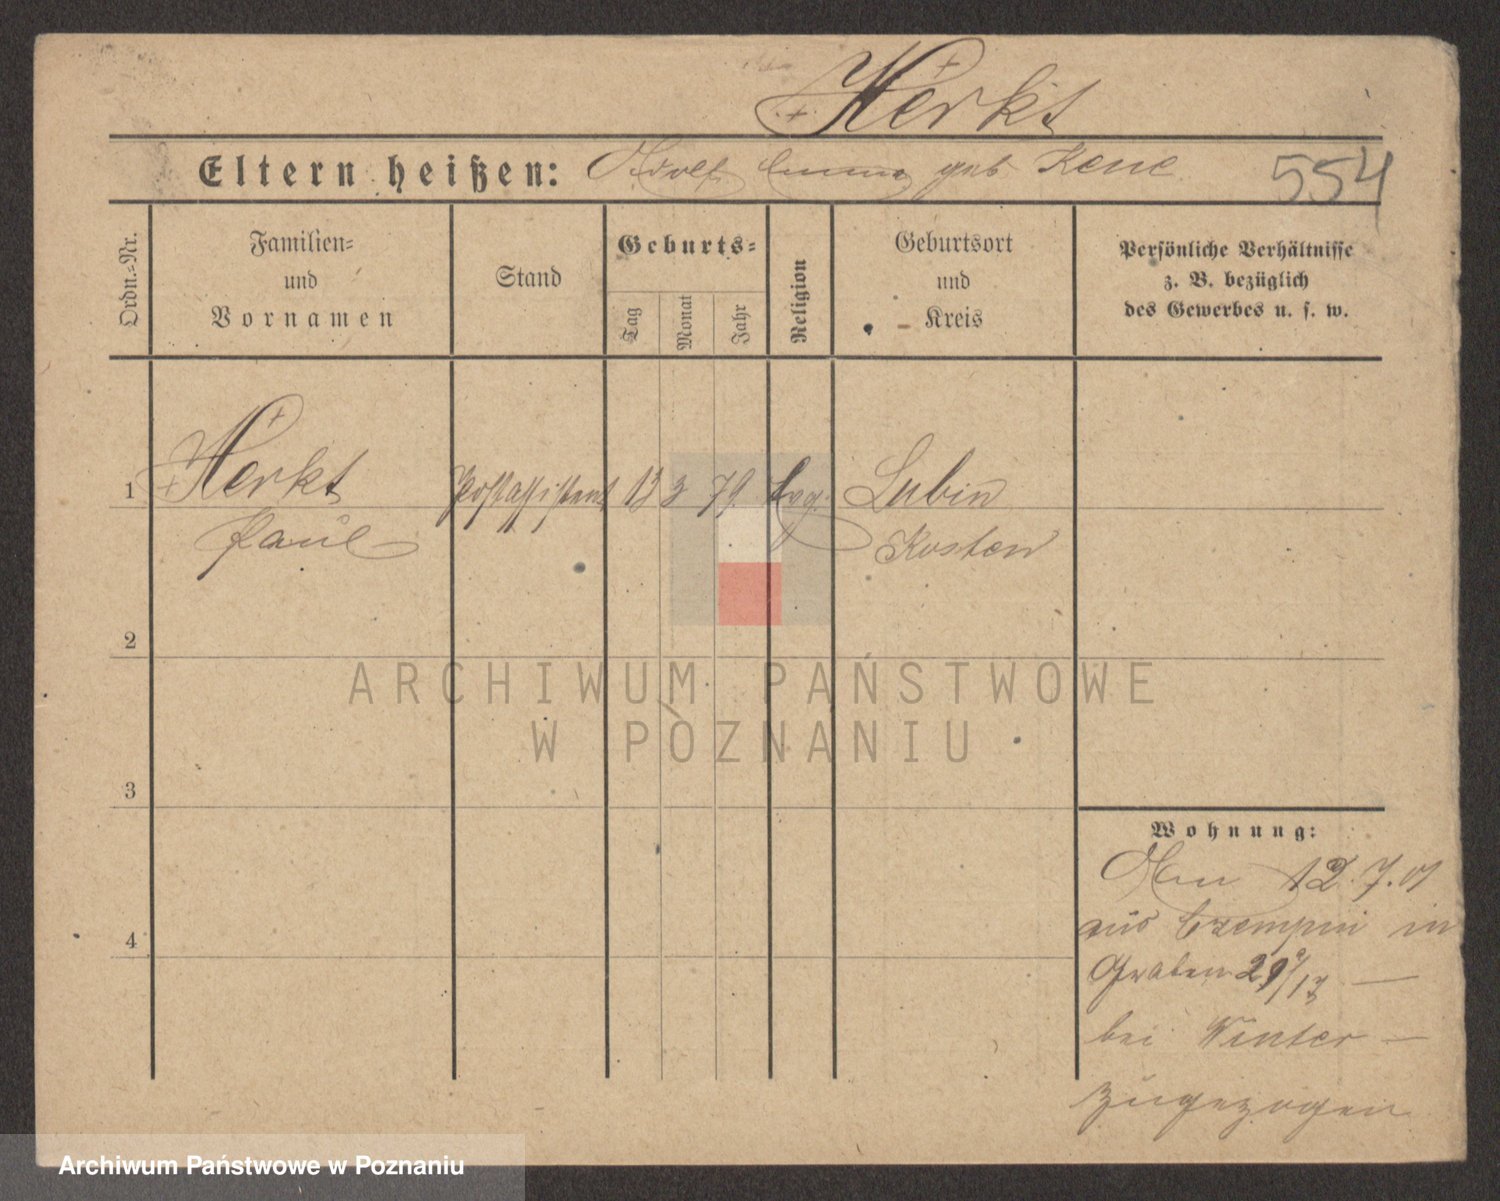 Herkt
Eltern heißen: Adolf Emma geb Kene 554
Ordn.-Nr.
Familien-
und
Vornamen
Stand
Geburts-
Tag
Monat
Jahr
Religion
Geburtsort
und
Kreis
Persönliche Verhältnisse
z. B. bezüglich
des Gewerbes u. s. w.
1 Herkt Postassistent 13 3 79. Evg. Lubin
Paul Kosten
2
ARCHIWUM PAŃSTWOWE
W POZNANIU
3
Wohnung:
Am 12.7.01
aus Czempin in
Graben 29/13 —
4
bei Winter —
zugezogen
Archiwum Państwowe w Poznaniu